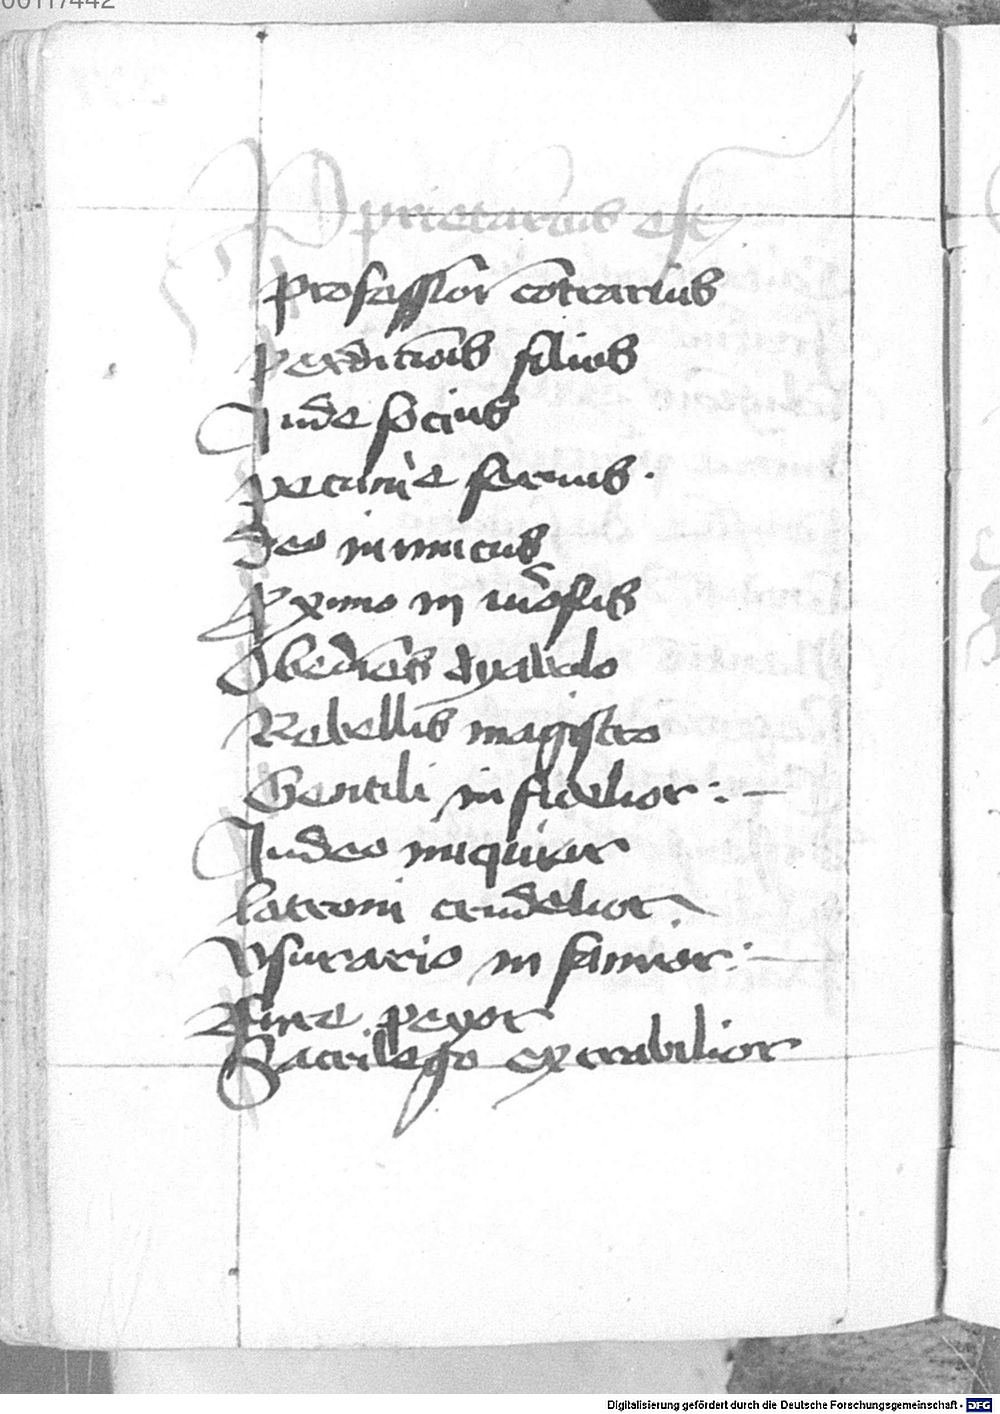 00117442
Pprietarius est
professor cōtrarius
perditiōis filius
Jude socius
pecunie seruus.
deo inimicus
Pximo in
Obediēs dyabolo
Rebellis magistro
Gentili infidelior:
Judeo iniquior
latroni crudelior
Vsurario in sanior:
fure peyor
Sacrilego execrabilior
Digitalisierung gefördert durch die Deutsche Forschungsgemeinschaft - DFG